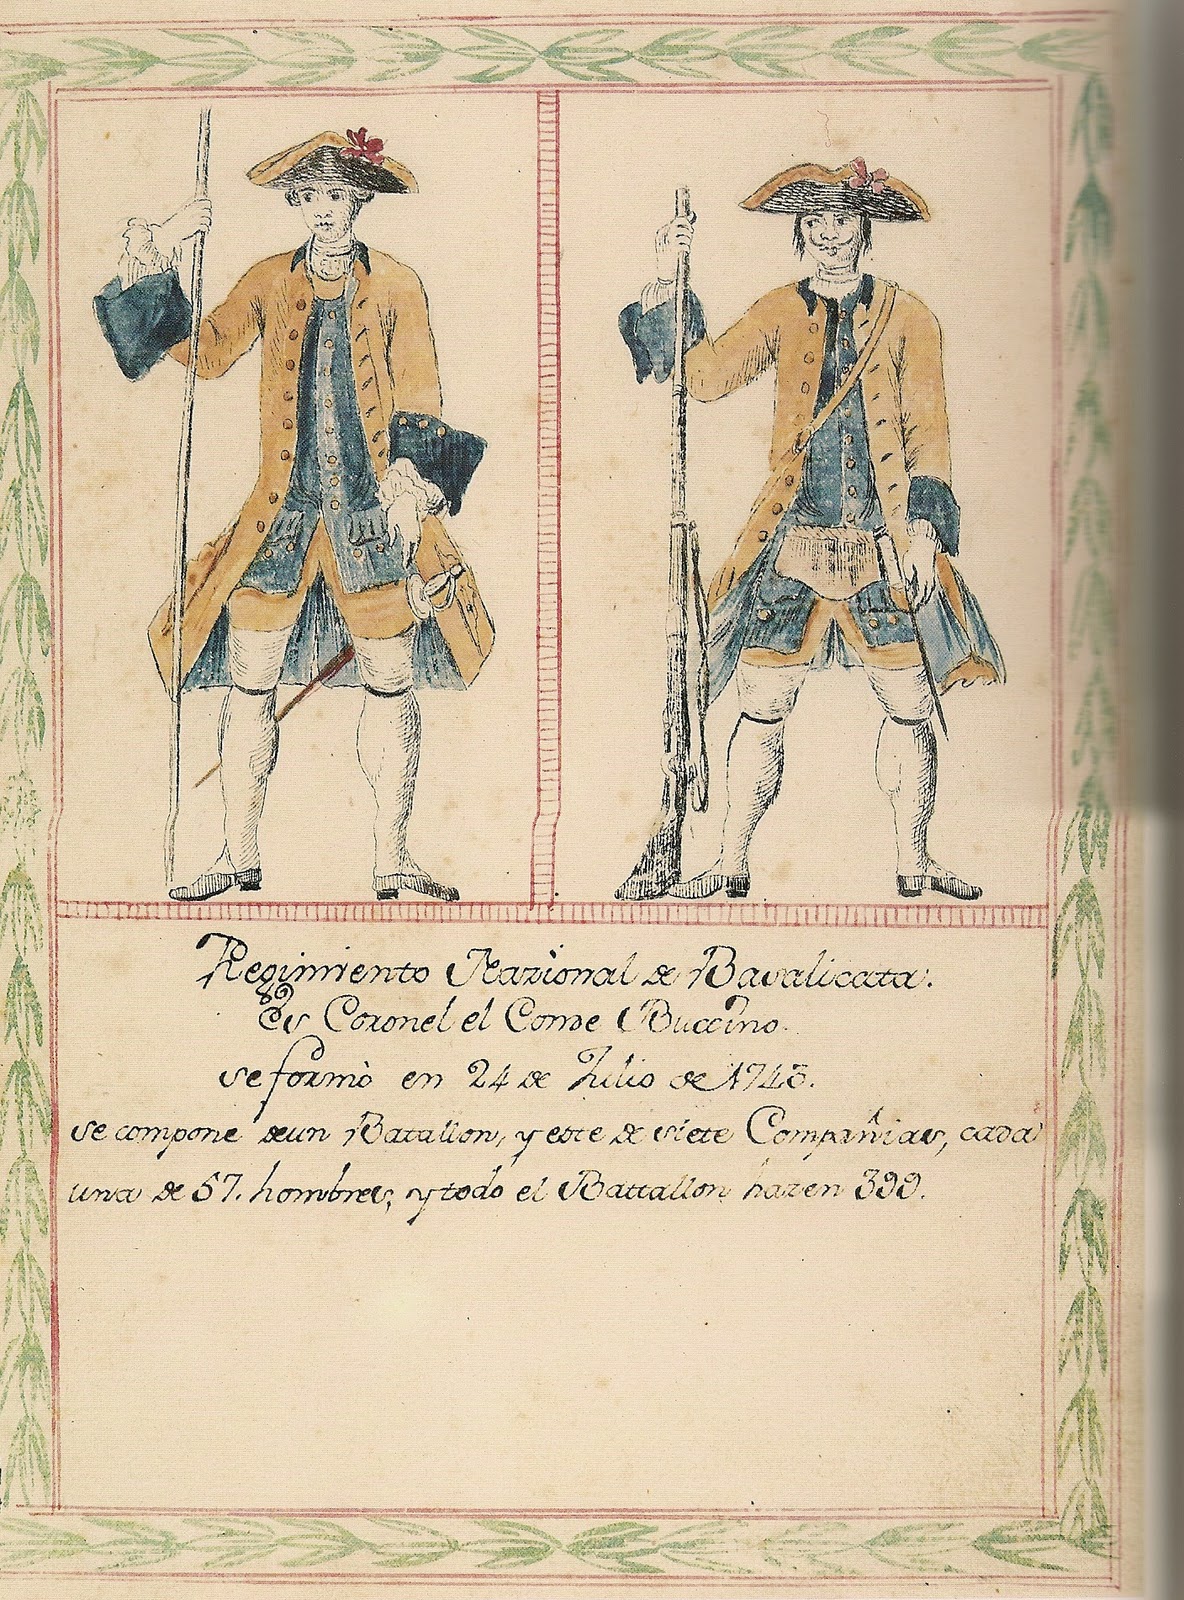 Regimiento Nazional de Basalicata.
Es Coronel el Conde Buccino.
se formò en 24 de Julio de 1743.
se compone deun Batallon, y este de siete Compañias, cada
una de 57. hombres, y todo el Battallon hazen 399.